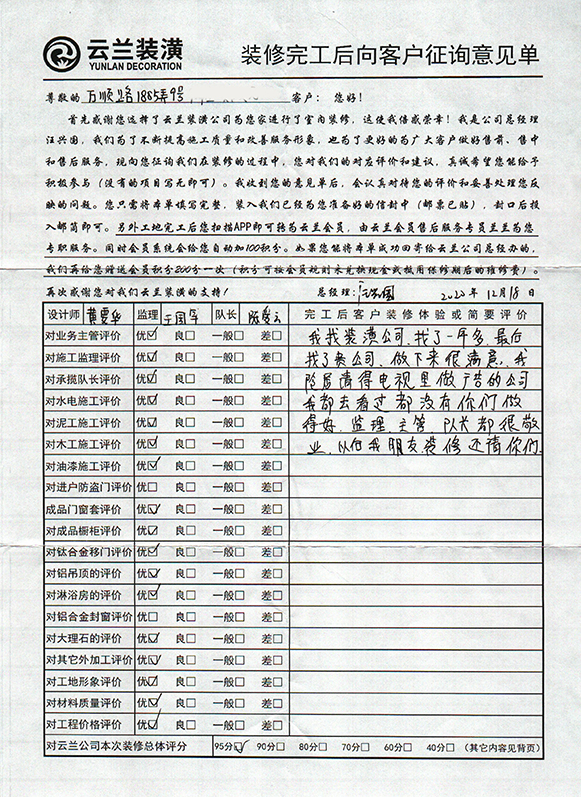 云兰装潢
YUNLAN DECORATION
装修完工后向客户征询意见单
尊敬的 万顺路1885弄9号 客户：您好！
首先感谢您选择了云兰装潢公司为您家进行了室内装修，这使我倍感荣幸！我是公司总经理
汪兴国，我们为了不断提高施工质量和改善服务形象，也为了更好的为广大客户做好售前、售中
和售后服务，现向您征询我们在装修的过程中，您对我们的对应评价和建议，真诚希望您能给予
积极参与（没有的项目写无即可）。我收到您的意见单后，会认真对待您的评价和妥善处理您反
映的问题。您只需将本单填写完整，装入我们已经为您准备好的信封中（邮票已贴），封口后投
入邮筒即可。另外工地完工后您扫描APP即可转为云兰会员，由云兰会员售后服务专员兰兰为您
专职服务。同时会员系统会给您自动加100积分。如果您能将本单成功回寄给云兰公司总经办的，
我们再给您赠送会员积分200分一次（积分可按会员规则来兑换现金或投用保修期后的维修费）。
再次感谢您对我们云兰装潢的支持！ 总经理： 2022年12月18日
设计师 监理 队长 完工客户装修体验或简要评价
对业务主管评价 优☑ 良□ 一般□ 差□ 我找装潢公司，找了一年多，最后
对施工监理评价 优☑ 良□ 一般□ 差□ 找了我公司，做下来很满意，我
对承揽队长评价 优☑ 良□ 一般□ 差□ 陪后请得电视里做广告的公司
对水电施工评价 优☑ 良□ 一般□ 差□ 我都去看过都没有你们做
对泥工施工评价 优☑ 良□ 一般□ 差□ 得好，监理，主管，队长都很敬
对木工施工评价 优☑ 良□ 一般□ 差□ 业，以后我朋友装修还请你们
对油漆施工评价 优☑ 良□ 一般□ 差□
对进户防盗门评价 优□ 良□ 一般□ 差□
成品门窗套评价 优☑ 良□ 一般□ 差□
对成品橱柜评价 优☑ 良□ 一般□ 差□
对钛合金移门评价 优☑ 良□ 一般□ 差□
对铝吊顶的评价 优☑ 良□ 一般□ 差□
对淋浴房的评价 优☑ 良□ 一般□ 差□
对铝合金封窗评价 优□ 良□ 一般□ 差□
对大理石的评价 优☑ 良□ 一般□ 差□
对其它外加工评价 优☑ 良□ 一般□ 差□
对工地形象评价 优☑ 良□ 一般□ 差□
对材料质量评价 优☑ 良□ 一般□ 差□
对工程价格评价 优☑ 良□ 一般□ 差□
对云兰公司本次装修总体评分 95分☑ 90分□ 80分□ 70分□ 60分□ 40分□ （其它内容见背页）